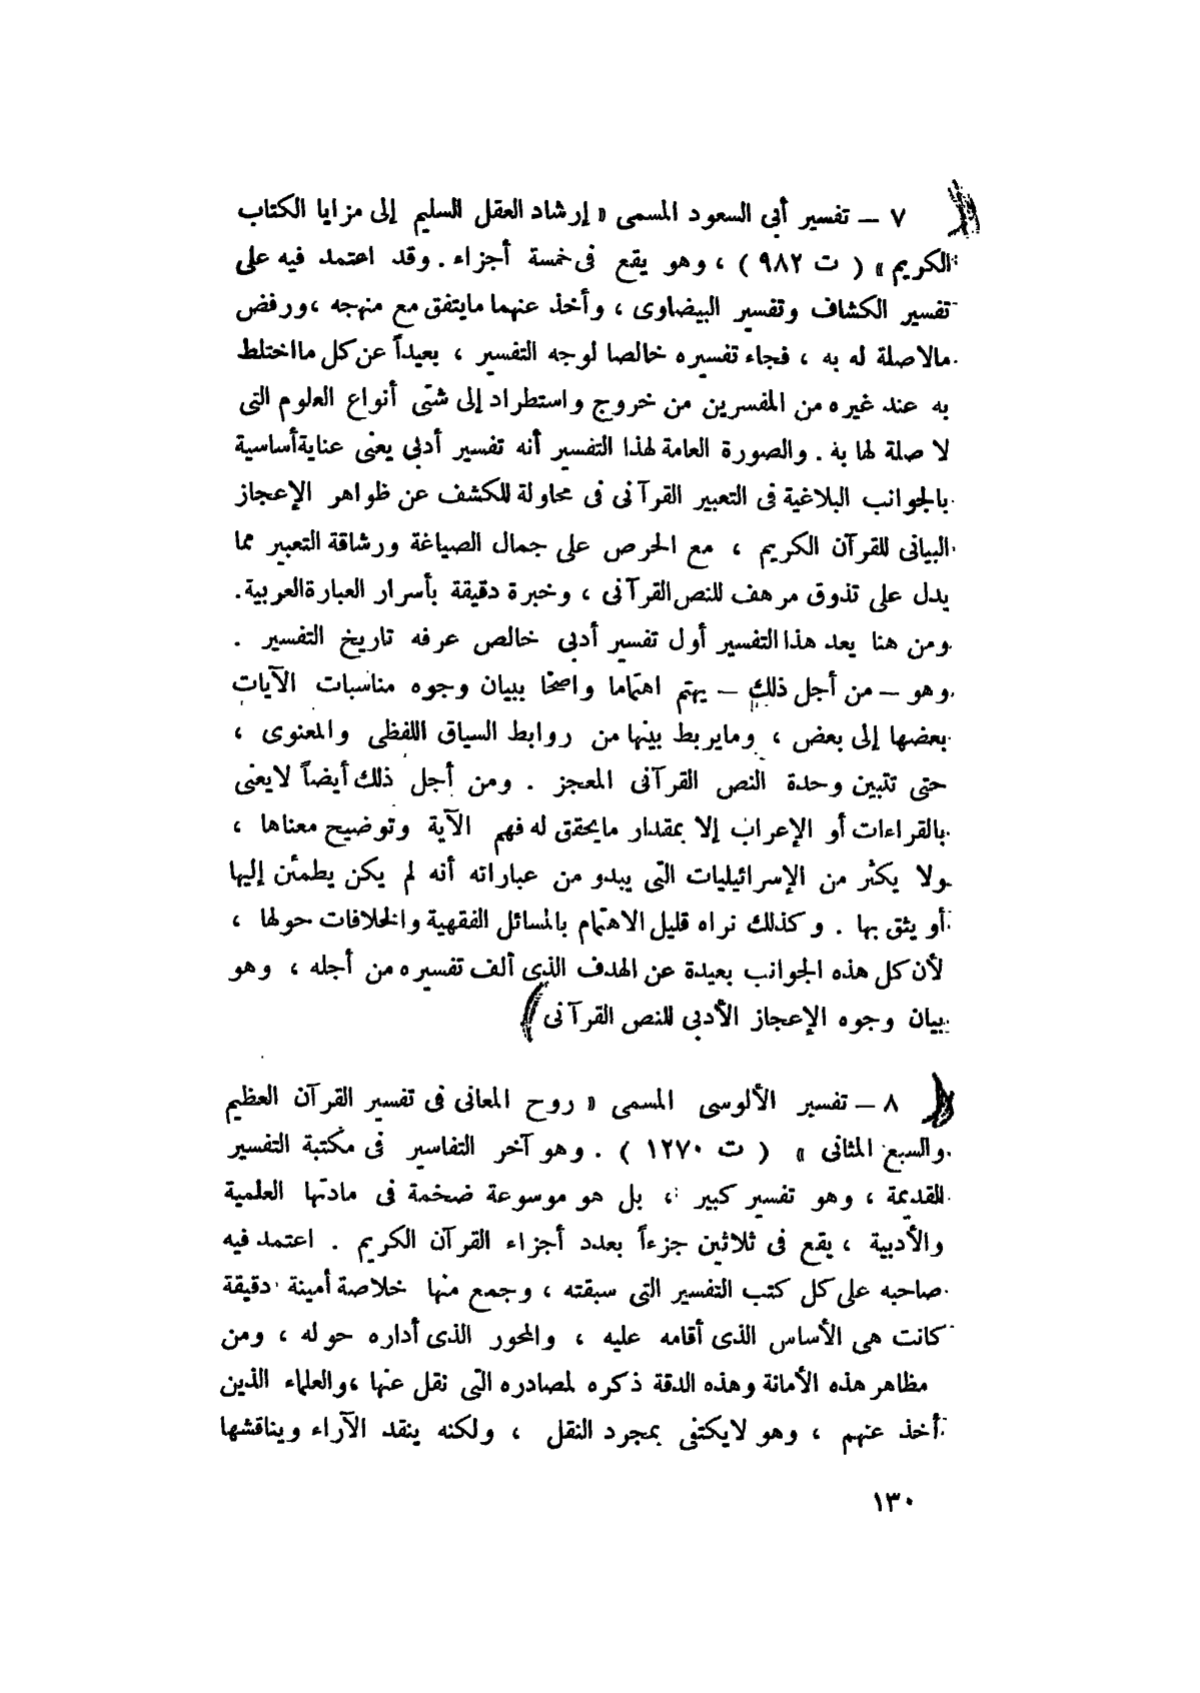 ٧ — تفسير أبى السعود المسمى « إرشاد العقل السليم إلى مزايا الكتاب
الكريم » ( ت ٩٨٢ ) ، وهو يقع فى خمسة أجزاء . وقد اعتمد فيه على
تفسير الكشاف وتفسير البيضاوى ، وأخذ عنهما مايتفق مع منهجه ، ورفض
مالاصلة له به ، فجاء تفسيره خالصا لوجه التفسير ، بعيداً عن كل مااختلط
به عند غيره من المفسرين من خروج واستطراد إلى شتى أنواع العلوم التى
لا صلة لها به . والصورة العامة لهذا التفسير أنه تفسير أدبى يعنى عناية أساسية
بالجوانب البلاغية فى التعبير القرآنى فى محاولة للكشف عن ظواهر الإعجاز
البيانى للقرآن الكريم ، مع الحرص على جمال الصياغة ورشاقة التعبير مما
يدل على تذوق مرهف للنص القرآنى ، وخبرة دقيقة بأسرار العبارة العربية .
ومن هنا يعد هذا التفسير أول تفسير أدبى خالص عرفه تاريخ التفسير .
وهو — من أجل ذلك — يهتم اهتماما واضحا ببيان وجوه مناسبات الآيات
بعضها إلى بعض ، ومايربط بينها من روابط السياق اللفظى والمعنوى ،
حتى تتبين وحدة النص القرآنى المعجز . ومن أجل ذلك أيضاً لايعنى
بالقراءات أو الإعراب إلا بمقدار مايحقق له فهم الآية وتوضيح معناها ،
ولا يكثر من الإسرائيليات التى يبدو من عباراته أنه لم يكن يطمئن إليها
أو يثق بها . وكذلك نراه قليل الاهتمام بالمسائل الفقهية والخلافات حولها ،
لأن كل هذه الجوانب بعيدة عن الهدف الذى ألف تفسيره من أجله ، وهو
بيان وجوه الإعجاز الأدبى للنص القرآنى
٨ — تفسير الألوسى المسمى « روح المعانى فى تفسير القرآن العظيم
والسبع المثانى » ( ت ١٢٧٠ ) . وهو آخر التفاسير فى مكتبة التفسير
القديمة ، وهو تفسير كبير ، بل هو موسوعة ضخمة فى مادتها العلمية
والأدبية ، يقع فى ثلاثين جزءاً بعدد أجزاء القرآن الكريم . اعتمد فيه
صاحبه على كل كتب التفسير التى سبقته ، وجمع منها خلاصة أمينة دقيقة
كانت هى الأساس الذى أقامه عليه ، والمحور الذى أداره حوله ، ومن
مظاهر هذه الأمانة وهذه الدقة ذكره لمصادره التى نقل عنها ، والعلماء الذين
أخذ عنهم ، وهو لايكتفى بمجرد النقل ، ولكنه ينقد الآراء ويناقشها
١٣٠